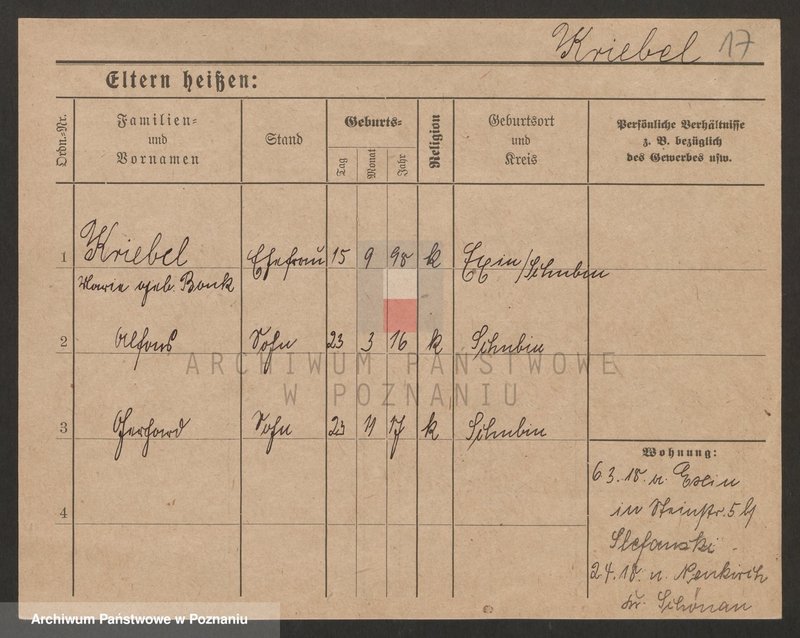 Kriebel 17
Eltern heißen:
Ordn.-Nr.
Familien-
und
Vornamen
Stand
Geburts-
Tag
Monat
Jahr
Religion
Geburtsort
und
Kreis
Persönliche Verhältnisse
z. B. bezüglich
des Gewerbes usw.
1 Kriebel Ehefrau 15 9 90 k Exin/Schubin
Marie geb. Bonk
2 Alfons Sohn 23 3 16 k Schubin
ARCHIWUM PAŃSTWOWE
W POZNANIU
3 Gerhard Sohn 23 11 17 k Schubin
Wohnung:
6.3.18. v. Exin
in Steinstr. 5 b/
Stefanski
4
24.18. n. Neukirch
Kr. Schönau
Archiwum Państwowe w Poznaniu